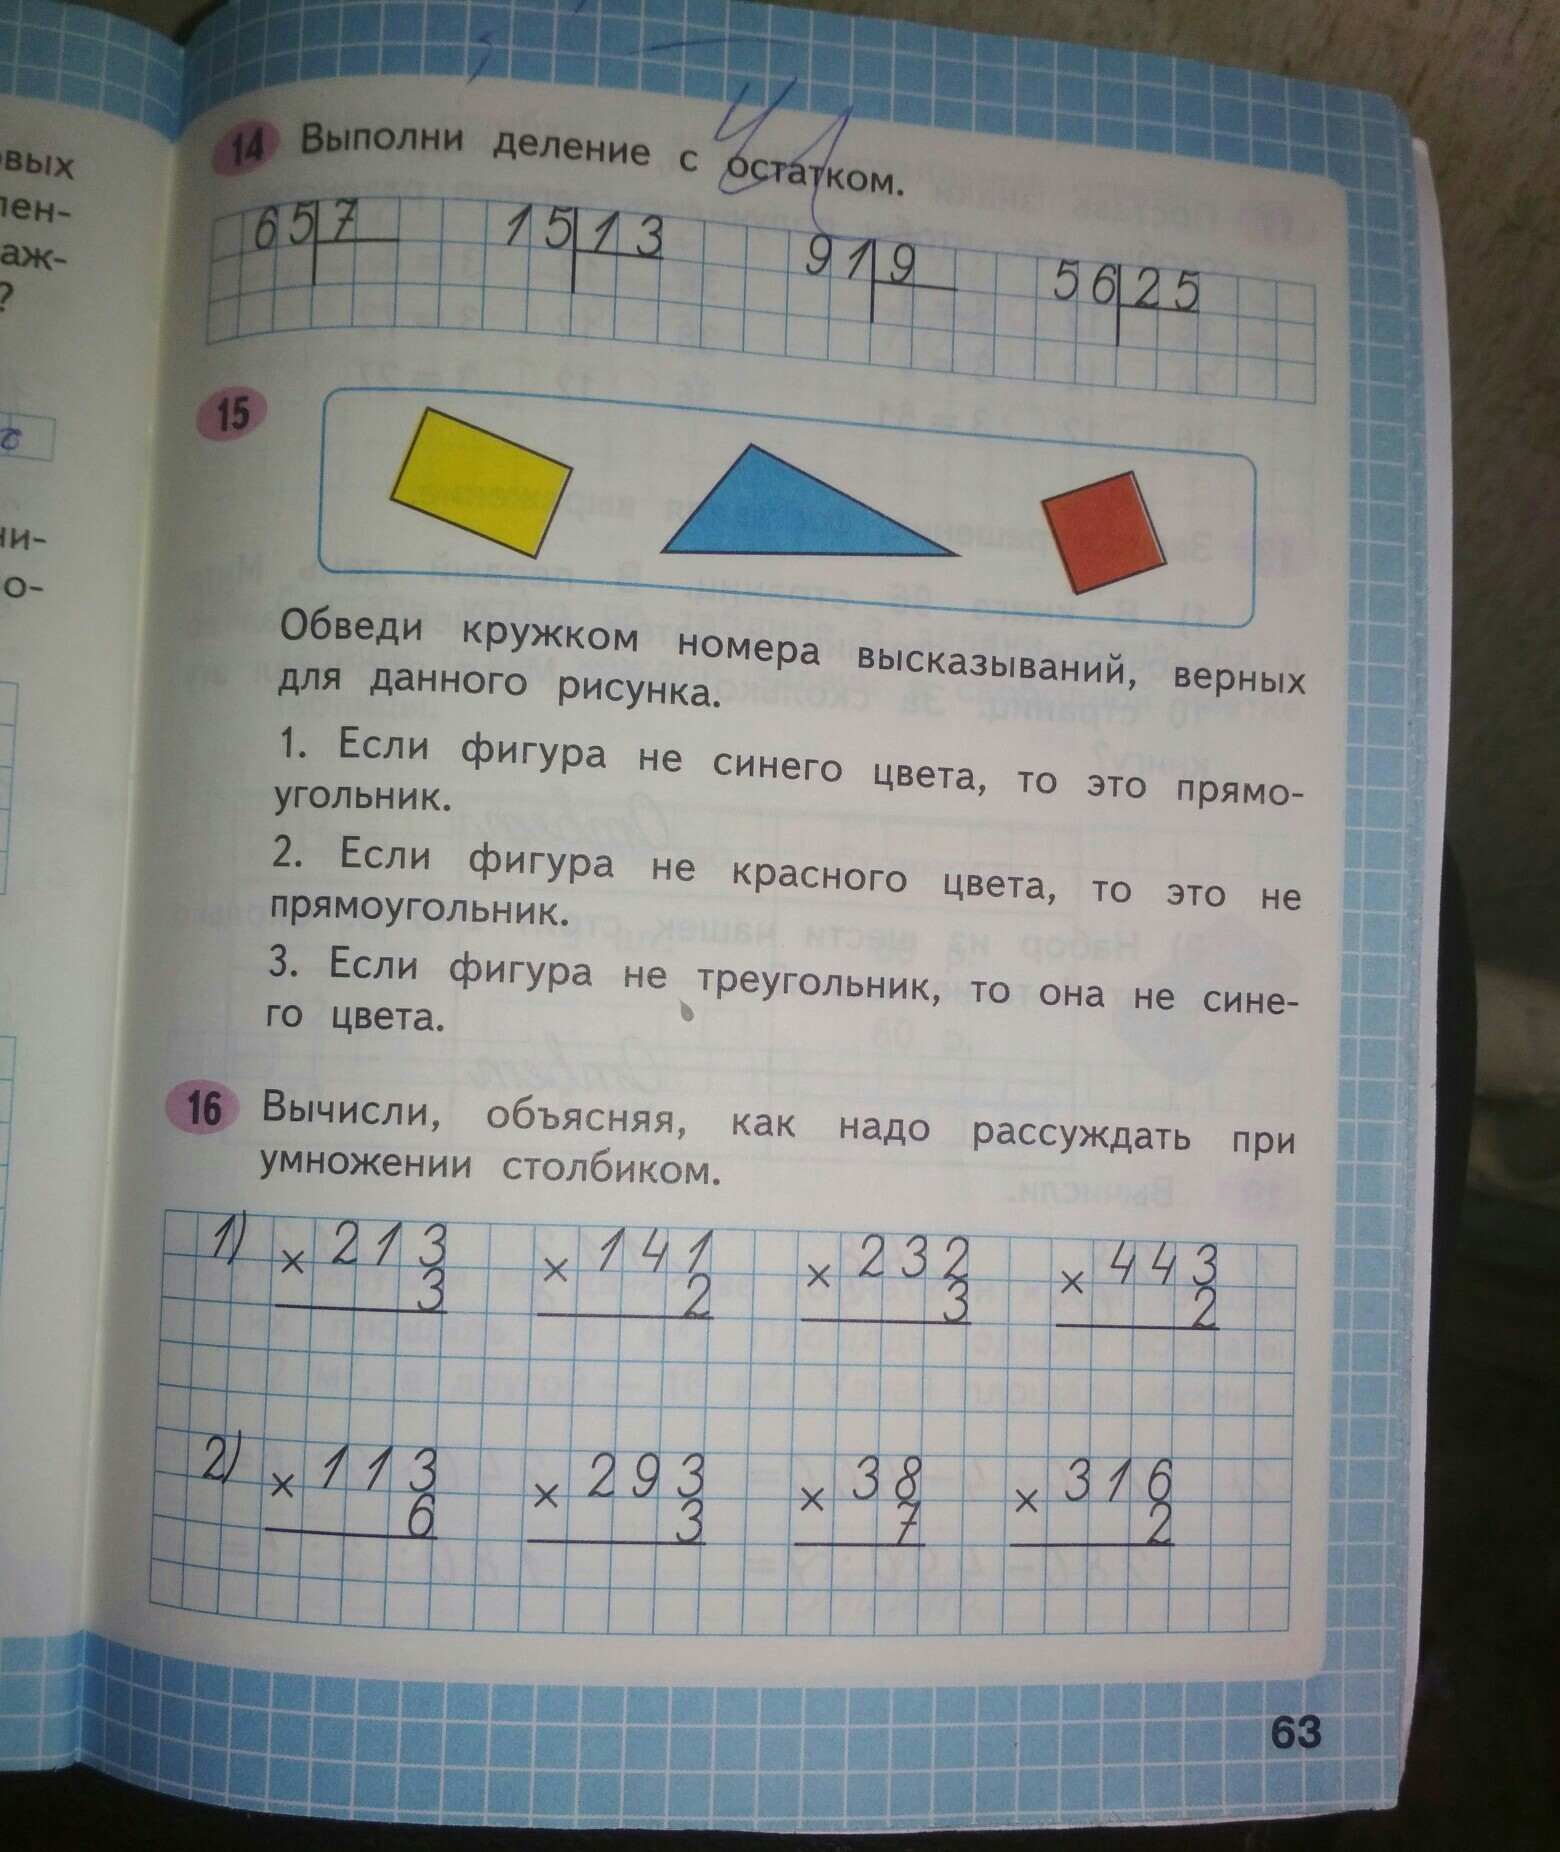 овых
лен-
аж-
?
ни-
о-
14 Выполни деление с остатком.
65 7 15 13 91 9 56 25
15
Обведи кружком номера высказываний, верных
для данного рисунка.
1. Если фигура не синего цвета, то это прямо-
угольник.
2. Если фигура не красного цвета, то это не
прямоугольник.
3. Если фигура не треугольник, то она не сине-
го цвета.
16 Вычисли, объясняя, как надо рассуждать при
умножении столбиком.
1) × 213 × 141 × 232 × 443
3 2 3 2
2) × 113 × 293 × 38 × 316
6 3 7 2
63